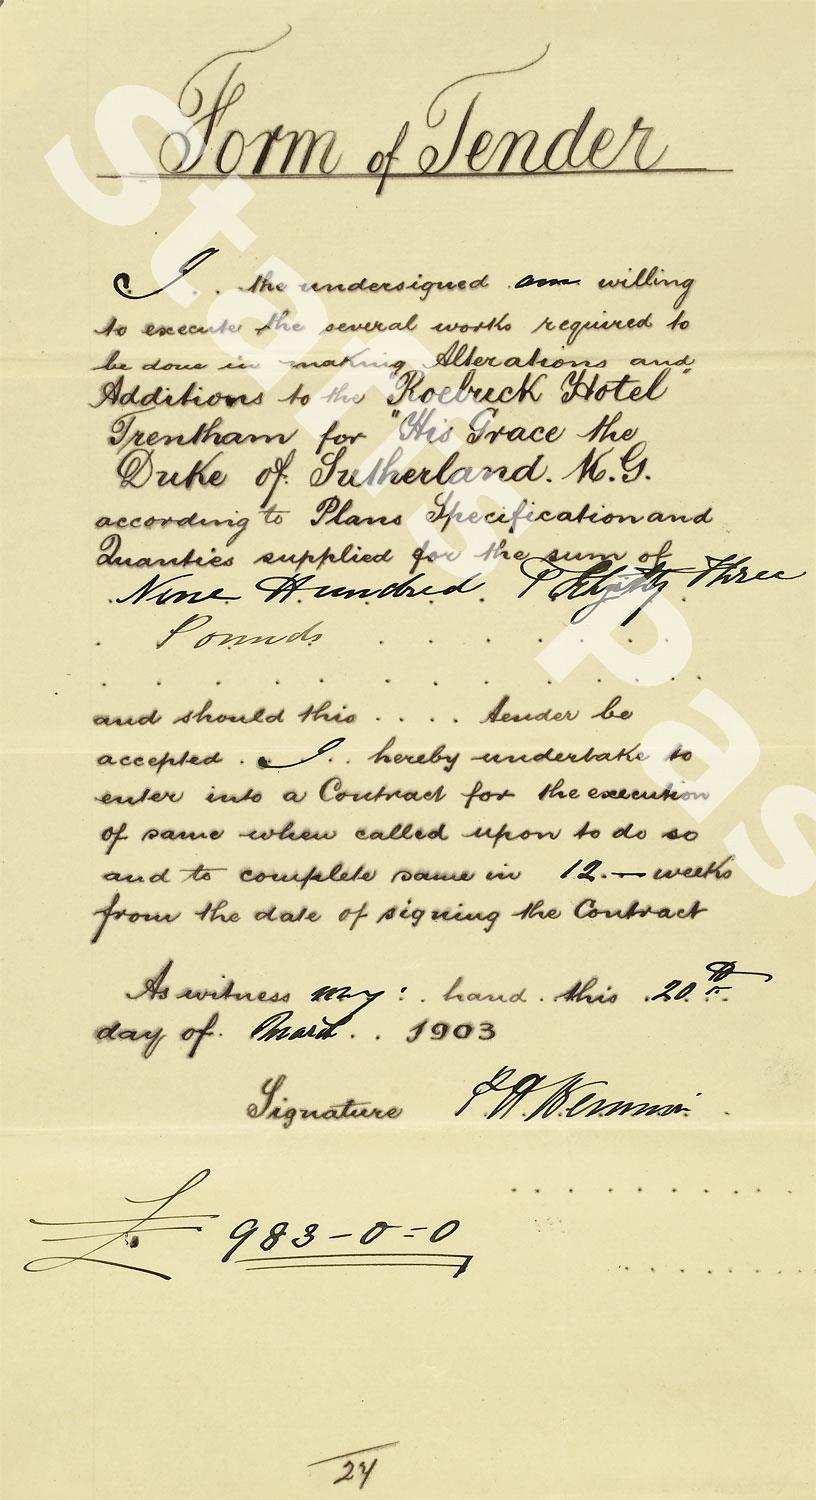 Form of Tender
I . . the undersigned am willing
to execute the several works required to
be done in making Alterations and
Additions to the "Roebuck Hotel"
Trentham for "His Grace the
Duke of Sutherland. K.G.
according to Plans Specification and
Quanties supplied for the sum of
Nine Hundred & Eighty Three
Pounds
and should this . . . . tender be
accepted . I . . hereby undertake to
enter into a Contract for the execution
of same when called upon to do so
and to complete same in 12.— weeks
from the date of signing the Contract
As witness my : . hand . this . 20th .
day of . March . . 1903
Signature
£ 983-0=0
24
Staffs Pas